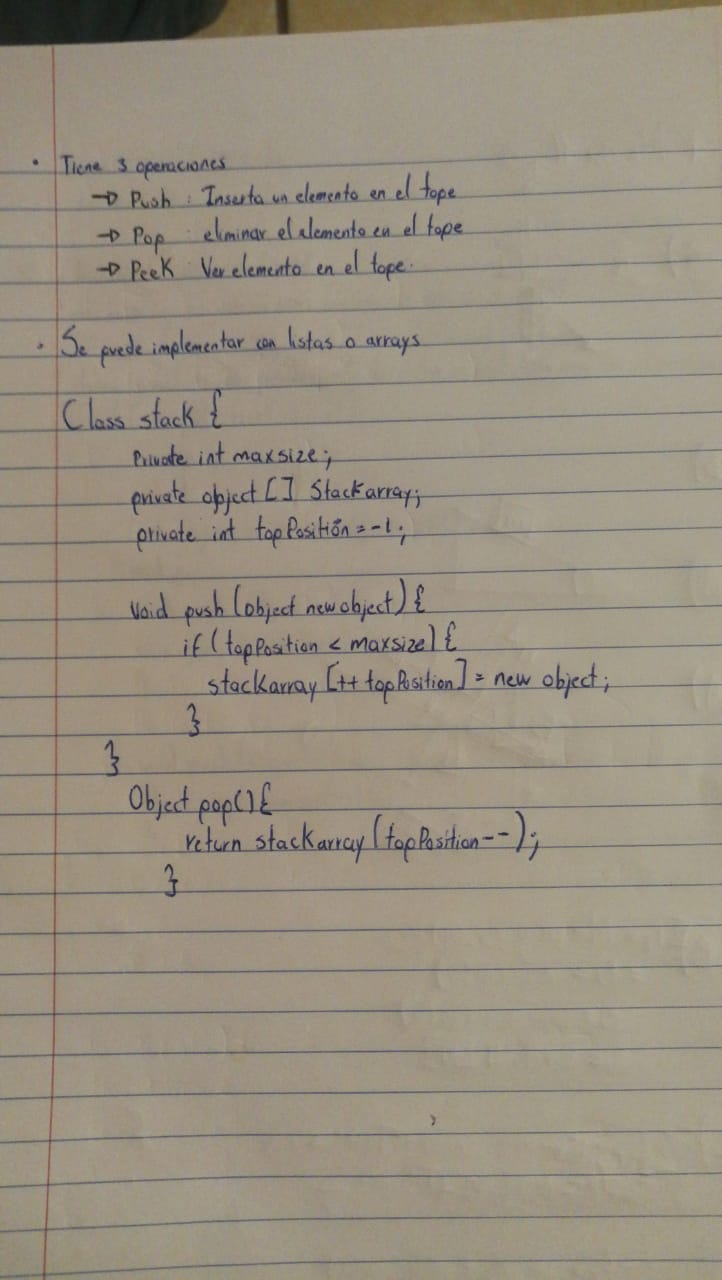 • Tiene 3 operaciones
→ Push : Inserta un elemento en el tope
→ Pop : eliminar el elemento en el tope
→ Peek : Ver elemento en el tope.
• Se puede implementar con listas o arrays
Class stack {
Private int maxsize;
private object [] Stackarray;
private int topPosition = -1;
Void push (object newobject) {
if (topPosition < maxsize) {
stackarray [++ topPosition] = new object;
}
}
Object pop() {
return stackarray (topPosition--);
}